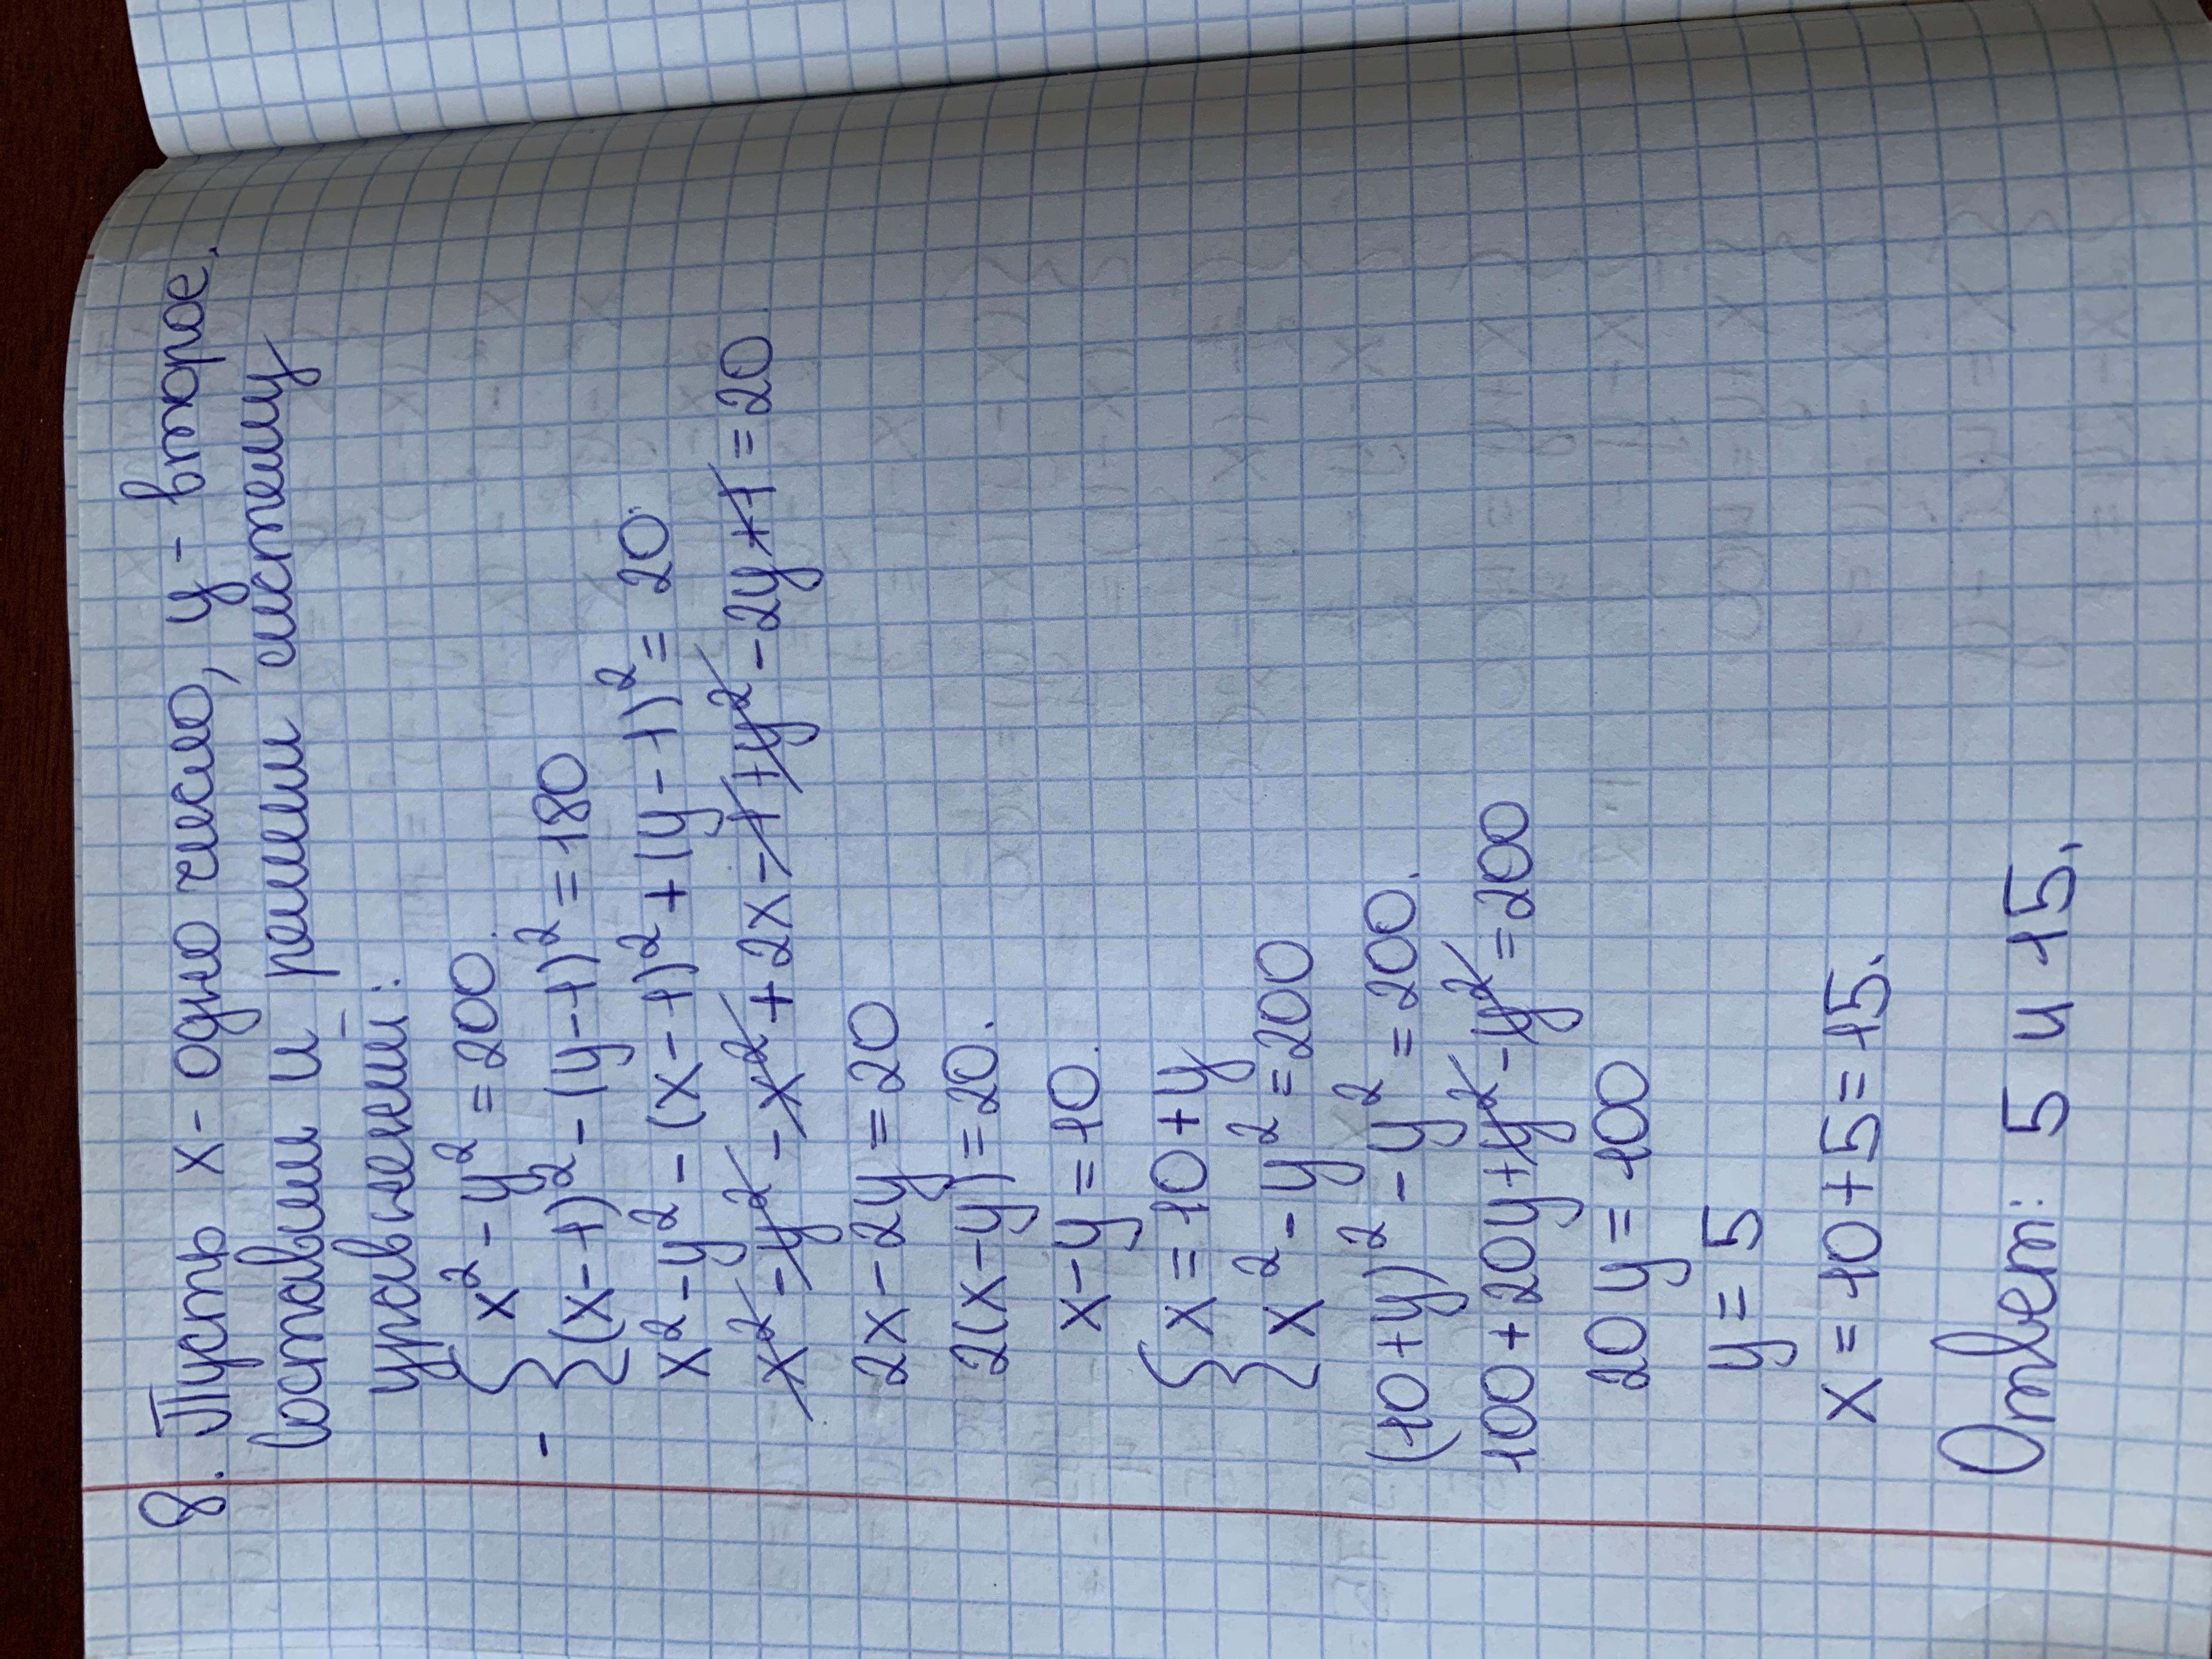 8. Пусть х - одно число, у - второе,
составим и решим систему
уравнений:
{ x² - y² = 200.
- { (x-1)² - (y-1)² = 180
x² - y² - (x-1)² + (y-1)² = 20.
x² - y² - x² + 2x - 1 + y² - 2y + 1 = 20
2x - 2y = 20
2(x-y) = 20.
x - y = 10.
{ x = 10 + y
{ x² - y² = 200
(10+y)² - y² = 200.
100 + 20y + y² - y² = 200
20y = 100
y = 5
x = 10 + 5 = 15.
Ответ: 5 и 15.